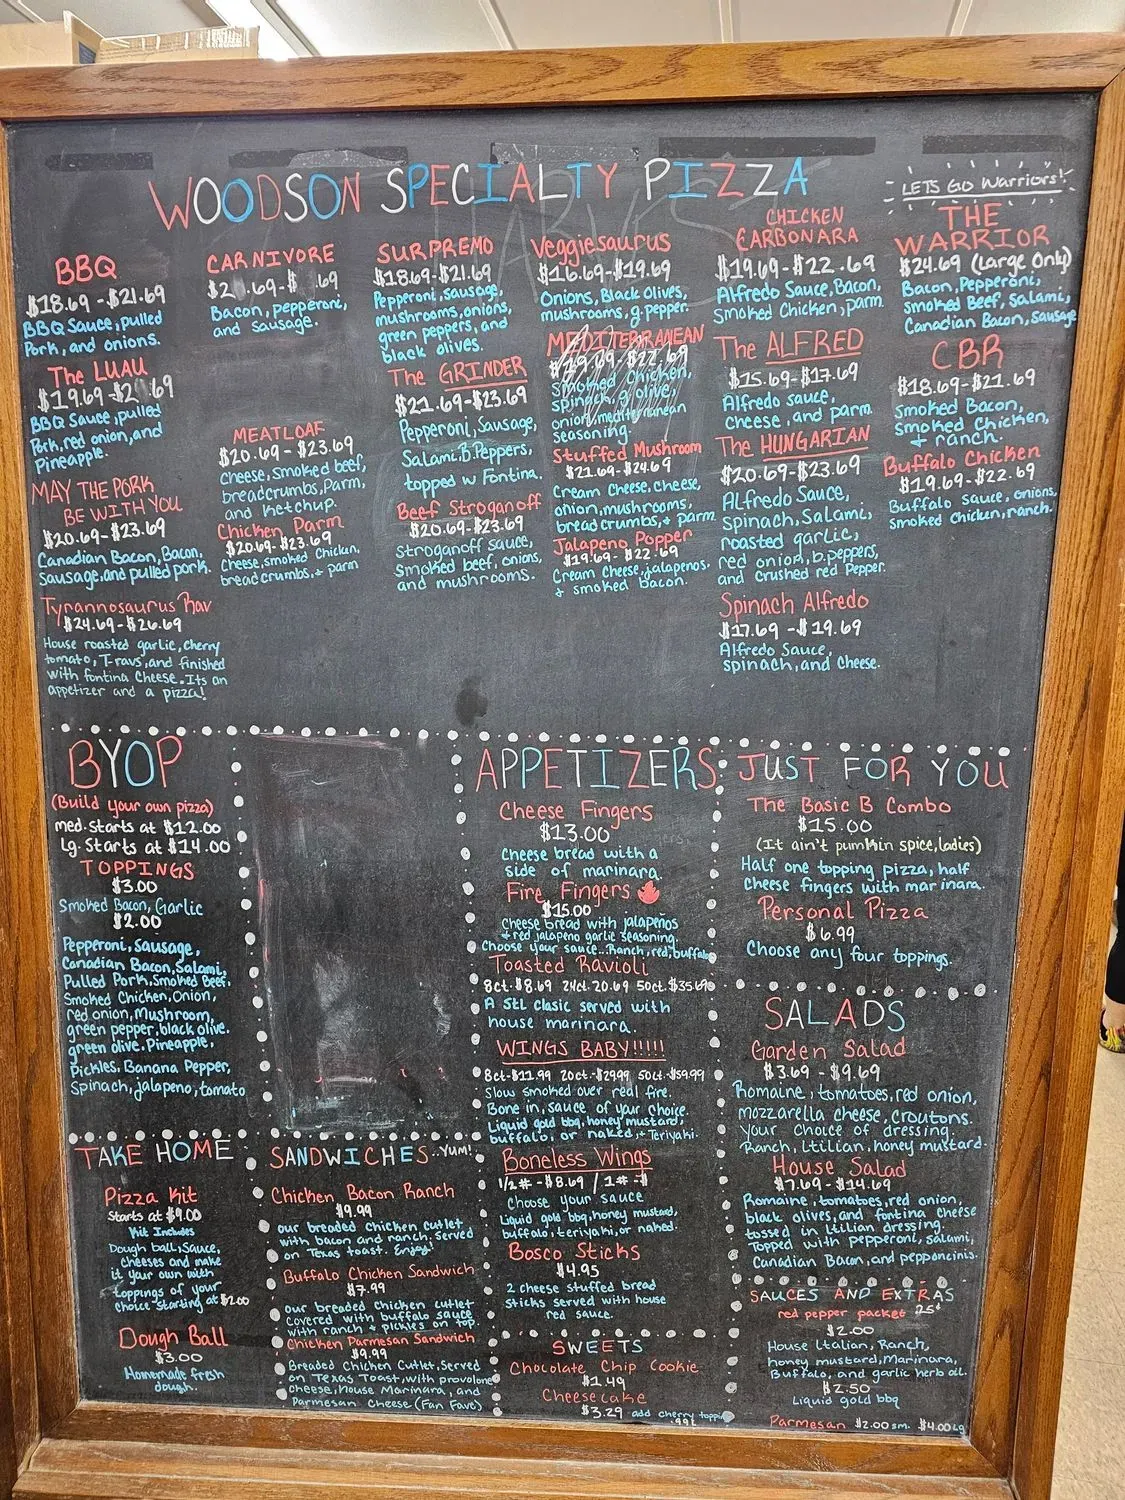 WOODSON SPECIALTY PIZZA
LETS GO Warriors!
BBQ
$18.69-$21.69
BBQ Sauce, pulled
Pork, and onions.
The LUAU
$19.69-$2 .69
BBQ Sauce, pulled
Pork, red onion, and
Pineapple.
MAY THE PORK
BE WITH YOU
$20.69-$23.69
Canadian Bacon, Bacon,
Sausage, and pulled pork.
Tyrannosaurus Rav
$24.69-$26.69
House roasted garlic, cherry
tomato, T-ravs, and finished
with fontina cheese. Its an
appetizer and a pizza!
CARNIVORE
$2 .69-$ .69
Bacon, pepperoni,
and sausage.
MEATLOAF
$20.69-$23.69
Cheese, smoked beef,
breadcrumbs, Parm,
and Ketchup.
Chicken Parm
$20.69-$23.69
Cheese, smoked chicken,
breadcrumbs, + parm
SURPREMO
$18.69-$21.69
Pepperoni, sausage,
mushrooms, onions,
green peppers, and
black olives.
The GRINDER
$21.69-$23.69
Pepperoni, Sausage,
Salami, B. Peppers,
topped w Fontina.
Beef Stroganoff
$20.69-$23.69
Stroganoff sauce,
smoked beef, onions,
and mushrooms.
Veggiesaurus
$16.69-$19.69
Onions, Black Olives,
mushrooms, g. pepper.
MEDITERRANEAN
$19.69-$22.69
Smoked Chicken,
spinach, g. olive,
onion, mediterranean
seasoning.
Stuffed Mushroom
$21.69-$24.69
Cream Cheese, Cheese,
onion, mushrooms,
breadcrumbs, + parm
Jalapeno Popper
$19.69-$22.69
Cream Cheese, jalapenos,
+ smoked bacon.
CHICKEN
CARBONARA
$19.69-$22.69
Alfredo Sauce, Bacon,
Smoked Chicken, Parm.
The ALFRED
$15.69-$17.69
Alfredo sauce,
cheese, and parm.
The HUNGARIAN
$20.69-$23.69
Alfredo Sauce,
Spinach, Salami,
roasted garlic,
red onion, b. peppers,
and crushed red Pepper.
Spinach Alfredo
$17.69-$19.69
Alfredo Sauce,
spinach, and cheese.
THE
WARRIOR
$24.69 (Large Only)
Bacon, Pepperoni,
smoked Beef, Salami,
Canadian Bacon, Sausage
CBR
$18.69-$21.69
Smoked Bacon,
Smoked Chicken,
+ ranch.
Buffalo Chicken
$19.69-$22.69
Buffalo sauce, onions,
smoked chicken, ranch.
BYOP
(Build your own pizza)
med. starts at $12.00
lg. starts at $14.00
TOPPINGS
$3.00
Smoked Bacon, Garlic
$2.00
Pepperoni, Sausage,
Canadian Bacon, Salami,
Pulled Pork, Smoked Beef,
Smoked Chicken, Onion,
red onion, Mushroom,
green pepper, black olive,
green olive, Pineapple,
Pickles, Banana Pepper,
Spinach, jalapeno, tomato
TAKE HOME
Pizza Kit
Starts at $9.00
Kit Includes
Dough ball, sauce,
cheeses and make
it your own with
toppings of your
choice starting at $2.00
Dough Ball
$3.00
Homemade fresh
dough.
SANDWICHES..YUM!
Chicken Bacon Ranch
$9.99
our breaded chicken cutlet
with bacon and ranch. Served
on Texas toast. Enjoy!
Buffalo Chicken Sandwich
$7.99
our breaded chicken cutlet
covered with buffalo sauce
with ranch + pickles on top.
Chicken Parmesan Sandwich
$9.99
Breaded Chicken Cutlet, Served
on Texas Toast, with provolone
cheese, House Marinara, and
Parmesan Cheese (Fan Fave)
APPETIZERS
Cheese Fingers
$13.00
Cheese bread with a
side of marinara.
Fire Fingers
$15.00
Cheese bread with jalapeños
+ red jalapeno garlic seasoning.
Choose your sauce...Ranch, red, buffalo
Toasted Ravioli
8ct. $8.69 24ct. 20.69 50ct. $35.69
A STL clasic served with
house marinara.
WINGS BABY!!!!!!
8ct-$11.99 20ct.-$29.99 50ct.-$59.99
Slow smoked over real fire.
Bone in, sauce of your choice.
Liquid gold bbq, honey mustard,
buffalo, or naked, + Teriyaki.
Boneless Wings
1/2#-$8.69 / 1#-$
Choose your sauce
Liquid gold bbq, honey mustard,
buffalo, teriyaki, or naked.
Bosco Sticks
$4.95
2 cheese stuffed bread
sticks served with house
red sauce.
SWEETS
Chocolate Chip Cookie
$1.49
Cheesecake
$3.29 add cherry topping
.99¢
JUST FOR YOU
The Basic B Combo
$15.00
(It ain't pumkin spice, ladies)
Half one topping pizza, half
cheese fingers with marinara.
Personal Pizza
$6.99
Choose any four toppings.
SALADS
Garden Salad
$3.69 - $9.69
Romaine, tomatoes, red onion,
mozzarella cheese, croutons.
Your choice of dressing
Ranch, Itilian, honey mustard.
House Salad
$7.69-$14.69
Romaine, tomatoes, red onion,
black olives, and fontina cheese
tossed in Itilian dressing.
Topped with pepperoni, salami,
Canadian Bacon, and pepponcinis.
SAUCES AND EXTRAS
red pepper packet 25¢
$2.00
House Italian, Ranch,
honey mustard, Marinara,
Buffalo, and garlic herb oil.
$2.50
Liquid gold bbq
Parmesan $2.00 sm. $4.00 Lg